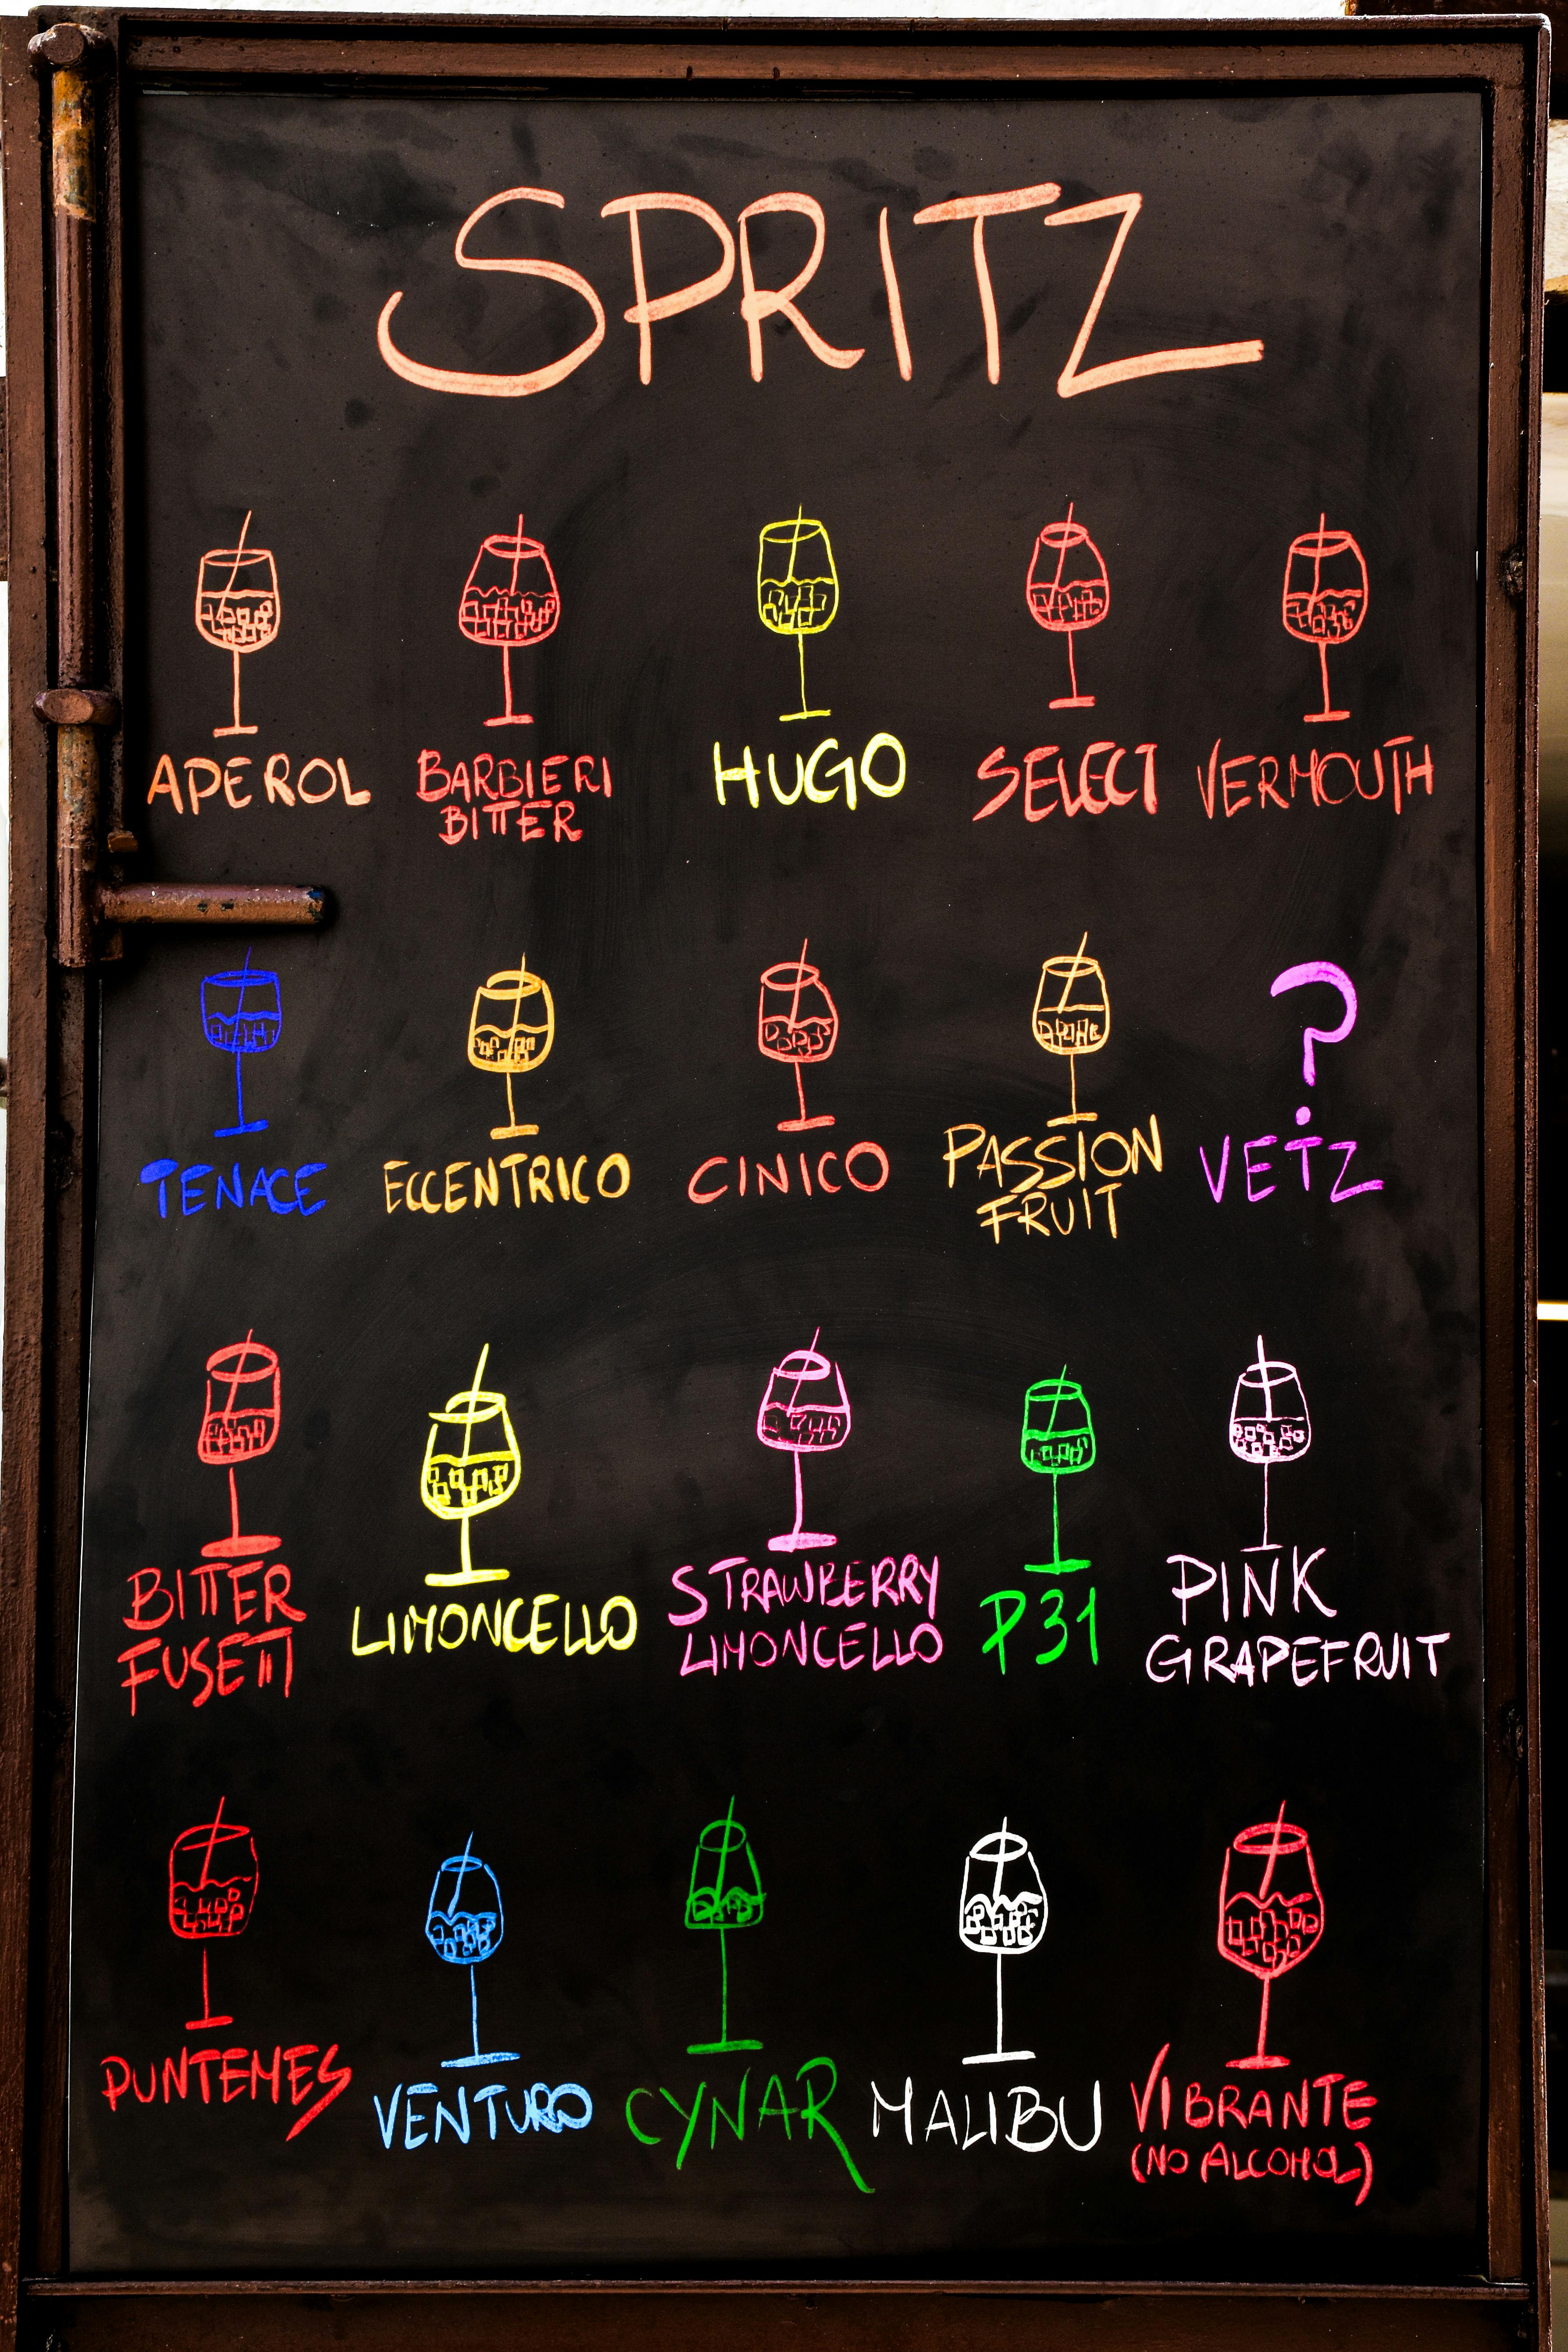 SPRITZ
APEROL
BARBIERI
BITTER
HUGO
SELECT
VERMOUTH
TENACE
ECCENTRICO
CINICO
PASSION
FRUIT
?
VETZ
BITTER
FUSETTI
LIMONCELLO
STRAWBERRY
LIMONCELLO
P31
PINK
GRAPEFRUIT
PUNTEMES
VENTURO
CYNAR
MALIBU
VIBRANTE
(NO ALCOHOL)